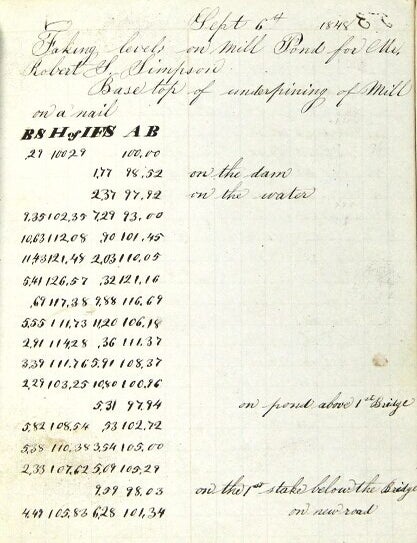 Sept 6th 1848
Taking levels on Mill Pond for Mr.
Robert S. Simpson
Base top of underpining of Mill
on a nail
BS H of I FS A B
.29 100.29 100.00
1.77 98.52 on the dam
2.37 97.92 on the water
9.35 102.35 7.29 93.00
10.63 112.08 .90 101.45
11.43 121.48 2.03 110.05
5.41 126.57 .32 121.16
.69 117.38 9.88 116.69
5.55 111.73 11.20 106.18
2.91 114.28 .36 111.37
3.39 111.76 5.91 108.37
2.29 103.25 10.80 100.96
5.31 97.94 on pond above 1st Bridge
5.82 108.54 .53 102.72
5.38 110.38 3.54 105.00
2.33 107.62 5.09 105.29
9.59 98.03 on the 1st stake below the Bridge
4.49 105.83 6.28 101.34 on new road